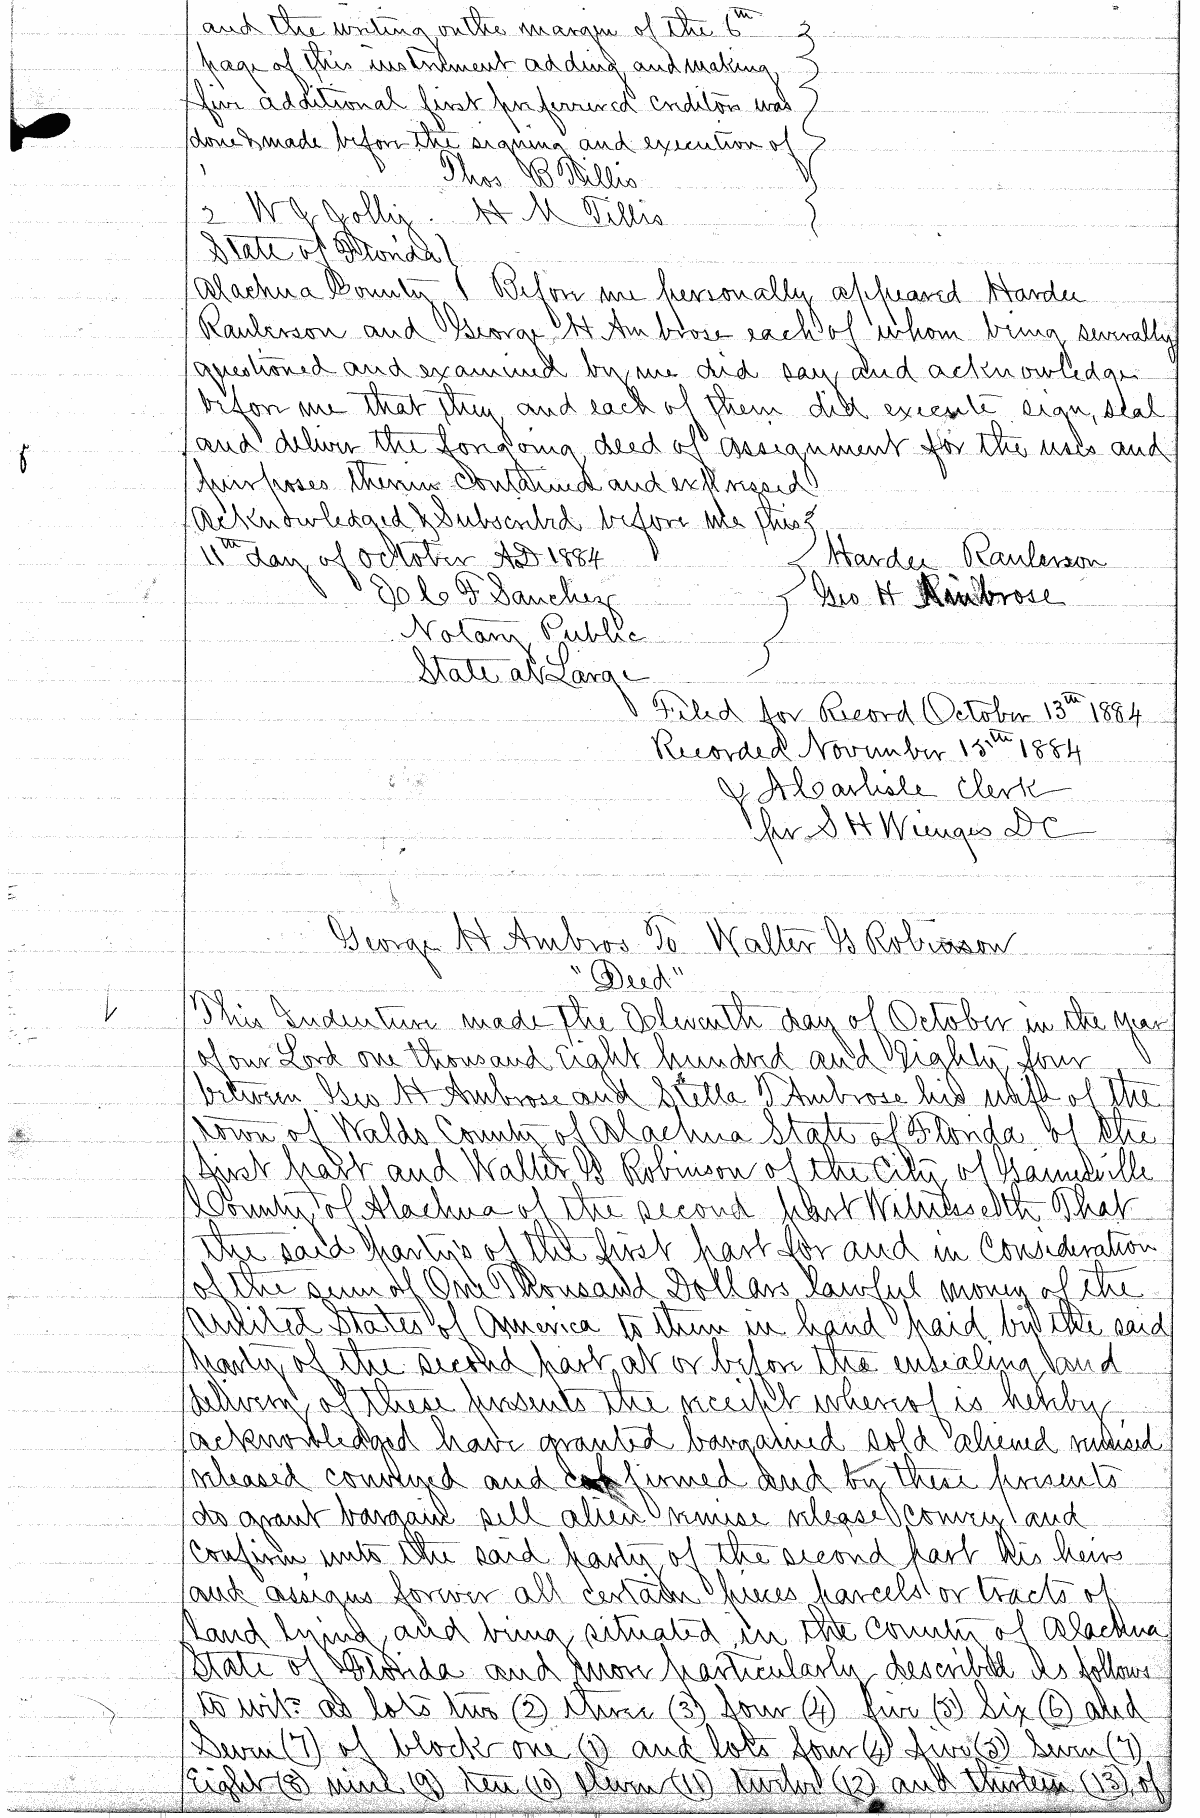 and the writing on the margin of the 6th
page of this instrument adding and making
five additional first preferrered creditors was
done & made before the signing and execution of
Thos B Tillis
2 W J Jolly. H M Tillis
State of Florida
Alachua County Before me personally appeared Hardee
Raulerson and George H Ambrose each of whom being severally
questioned and examined by me did say and acknowledge
before me that they and each of them did execute sign, seal
and deliver the forgoing deed of assignment for the uses and
purposes therein contained and expressed
Acknowledged & Subscribed before me this
11th day of October AD 1884 Hardee Raulerson
F Sanchez Geo H Ambrose
Notary Public
State at Large
Filed for Record October 13th 1884
Recorded November 15th 1884
J A Carlisle Clerk
per S H Wienges DC
George H Ambros To Walter G Robinson
"Deed"
This Indenture made the Eleventh day of October in the year
of our Lord one thousand Eight hundred and Eighty four
between Geo H Ambrose and Stella T Ambrose his wife of the
town of Waldo County of Alachua State of Florida of the
first part and Walter G Robinson of the City of Gainesville
County of Alachua of the second part Witnesseth That
the said party's of the first part for and in Consideration
of the sum of One Thousand Dollars lawful money of the
United States of America to them in hand paid by the said
party of the second part at or before the ensealing and
delivery of these presents the receipt whereof is hereby
acknowledged have granted bargained sold aliened remised
released conveyed and confirmed and by these presents
do grant bargain sell alien remise release convey and
confirm unto the said party of the second part his heirs
and assigns forever all certain pieces parcels or tracts of
land lying and being situated in the County of Alachua
State of Florida and more particularly described as follows
to wit: as lots two (2) three (3) four (4) five (5) Six (6) and
Seven (7) of block one (1) and lots four (4) five (5) Seven (7)
Eight (8) nine (9) ten (10) eleven (11) twelve (12) and thirteen (13) of